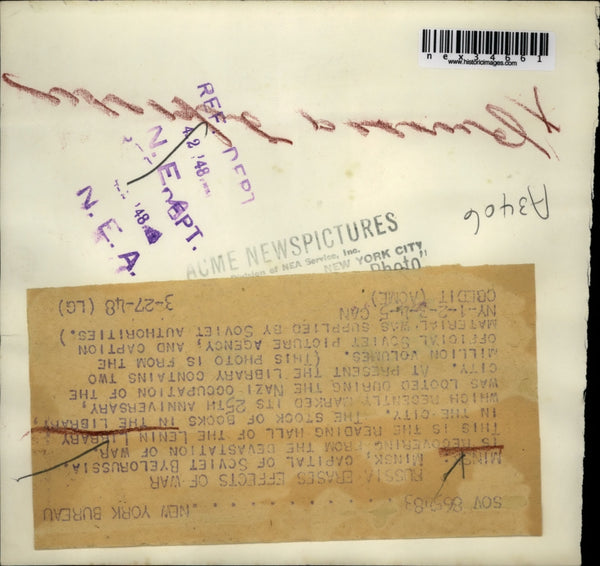 nex34661
www.historicimages.com
REF. DEPT
N. E. A.
ACME NEWSPICTURES
Division of NEA Service, Inc.
NEW YORK CITY
Photo"
A3406
NEW YORK BUREAU
RUSSIA ERASES EFFECTS OF WAR
MINSK, CAPITAL OF SOVIET BYELORUSSIA,
IS RECOVERING FROM THE DEVASTATION OF WAR.
THIS IS THE READING HALL OF THE LENIN LIBRARY
IN THE CITY. THE STOCK OF BOOKS IN THE LIBRARY,
WHICH RECENTLY MARKED ITS 25TH ANNIVERSARY,
WAS LOOTED DURING THE NAZI OCCUPATION OF THE
CITY. AT PRESENT THE LIBRARY CONTAINS TWO
MILLION VOLUMES. (THIS PHOTO IS FROM THE
OFFICIAL SOVIET PICTURE AGENCY, AND CAPTION
MATERIAL WAS SUPPLIED BY SOVIET AUTHORITIES.)
NY-1-2-3-4-5 CAN
CREDIT (ACME) 3-27-48 (LG)